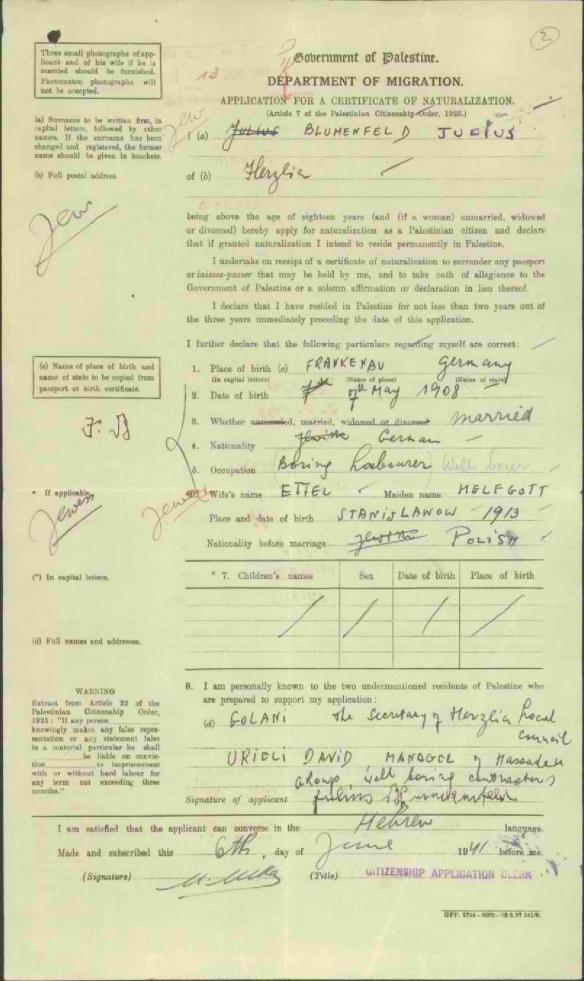 2
Three small photographs of app-
licant and of his wife if he is
married should be furnished.
Photomaton photographs will
not be accepted.
13
Government of Palestine.
DEPARTMENT OF MIGRATION.
APPLICATION FOR A CERTIFICATE OF NATURALIZATION.
(Article 7 of the Palestinian Citizenship Order, 1925.)
(a) Surname to be written first, in
capital letters, followed by other
names. If the surname has been
changed and registered, the former
name should be given in brackets.
Jew
I (a) Julius BLUMENFELD JULIUS
(b) Full postal address.
of (b) Herzlia
Jew
being above the age of eighteen years (and (if a woman) unmarried, widowed
or divorced) hereby apply for naturalization as a Palestinian citizen and declare
that if granted naturalization I intend to reside permanently in Palestine.
I undertake on receipt of a certificate of naturalization to surrender any passport
or laisses-passer that may be held by me, and to take oath of allegiance to the
Government of Palestine or a solemn affirmation or declaration in lieu thereof.
I declare that I have resided in Palestine for not less than two years out of
the three years immediately preceding the date of this application.
I further declare that the following particulars regarding myself are correct:
(c) Name of place of birth and
name of state to be copied from
passport or birth certificate.
1. Place of birth (c) FRANKENAU Germany
(In capital letters) (Name of place) (Name of state)
2. Date of birth 7th 7th May 1908
3. Whether unmarried, married, widowed or divorced married
4. Nationality Jewish German
5. Occupation Boring Labourer Well borer
* If applicable
Jewess
Jewess
*6. Wife's name ETTEL Maiden name HELFGOTT
Place and date of birth STANISLAWOW 1913
Nationality before marriage Jewish POLISH
(*) In capital letters.
* 7. Children's names Sex Date of birth Place of birth
(d) Full names and addresses.
8. I am personally known to the two undermentioned residents of Palestine who
are prepared to support my application:
(d) GOLANI The Secretary of Herzlia Local
Council
URIELI DAVID MANAGER of Hassadeh
Group well boring contractors
WARNING
Extract from Article 22 of the
Palestinian Citizenship Order,
1925: "If any person
knowingly makes any false repre-
sentation or any statement false
in a material particular he shall
be liable on convic-
tion to imprisonment
with or without hard labour for
any term not exceeding three
months."
Signature of applicant Julius Blumenfeld
I am satisfied that the applicant can converse in the Hebrew language.
Made and subscribed this 6th day of June 1941 before me
(Signature) (Title) CITIZENSHIP APPLICATION CLERK